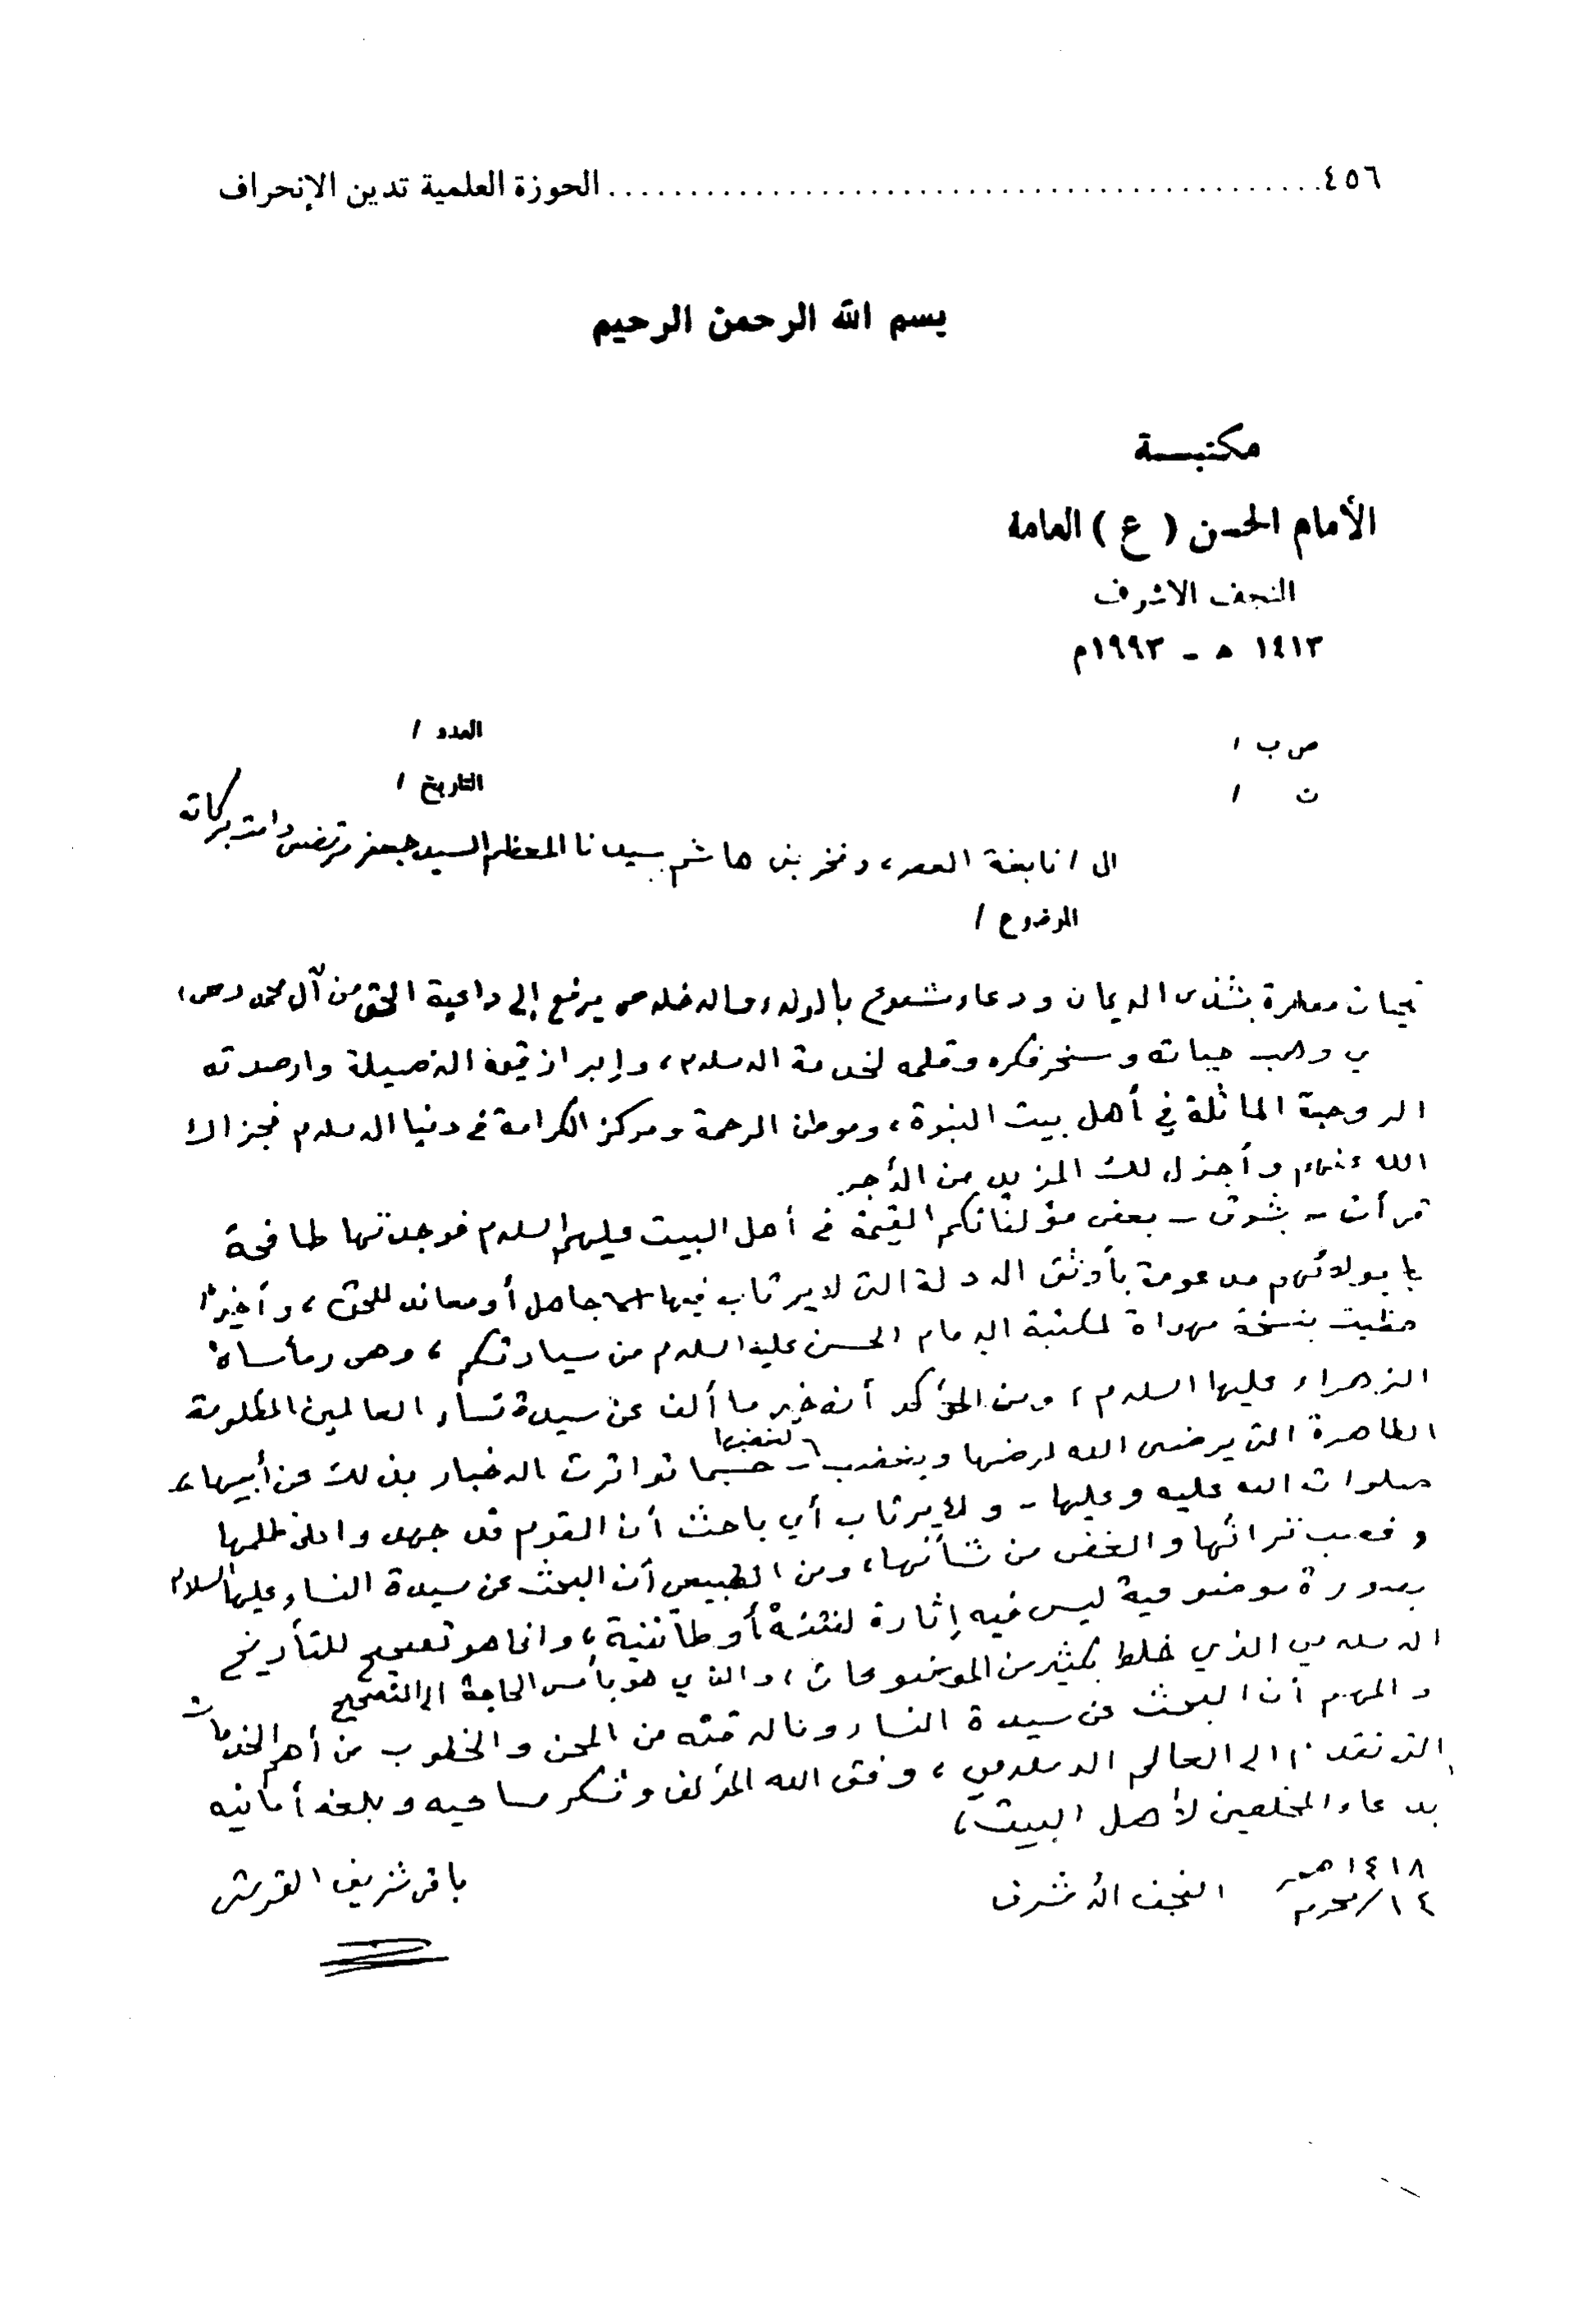 ٤٥٦ ........................................ الحوزة العلمية تدين الإنحراف
بسم الله الرحمن الرحيم
مكتبة
الأمام الحسن ( ع ) العامة
النجف الاشرف
١٤١٣ ه - ١٩٩٣م
العدد /
ص ب /
التاريخ /
ت /
الى / نابغة العصر ، وفخر بني هاشم سيدنا المعظم السيد جعفر مرتضى دامت بركاته
الموضوع /
تحيات معطرة بشذى الايمان ودعاء مشفوع بالولاء والاخلاص يرفع إلى داعية الحق من آل محمد (ص)
وهب حياته وسخر فكره وقلمه لخدمة الاسلام ، وإبراز قيمه الأصيلة وارصدته
الروحية الماثلة في أهل بيت النبوة ، وموطن الرحمة ومركز الكرامة في دنيا الاسلام فجزاك
الله عنهم وأجزل لك المزيد من الأجر
قرأت - بشوق - بعض مؤلفاتكم القيمة في أهل البيت عليهم السلام فوجدتها طافحة
بولائهم مدعومة بأوثق الادلة التي لا يرتاب فيها إلا جاهل أو معاند للحق ، وأخيراً
حظيت بنسخة مهداة لمكتبة الامام الحسن عليه السلام من سيادتكم ، وهي (مأساة
الزهراء عليها السلام) ومن المؤكد أنه خير ما ألف عن سيدة نساء العالمين المظلومة
الطاهرة التي يرضى الله لرضها ويغضب لغضبها - حسبما تواترت الاخبار بذلك عن أبيها ،
صلوات الله عليه وعليها - ولا يرتاب أي باحث أن القوم قد جهدوا على ظلمها
وغصب تراثها والغض من شأنها ، ومن الطبيعي أن البحث عن سيدة النساء عليها السلام
بصورة موضوعية ليس فيه إثارة لفتنة أو طائفية ، وانما هو تصحيح للتأريخ
الاسلامي الذي خلط بكثير من الموضوعات ، والذي هو بأمس الحاجة الى التصحيح
والمهم أن البحث عن سيدة النساء وما لاقته من المحن والخطوب من أهم الخدمات
التي تقدم الى العالم الاسلامي ، وفق الله المؤلف وشكر مساعيه وبلغه أمانيه
بدعاء المخلصين لأهل البيت ،
١٤١٨ هـ
١٤/محرم النجف الأشرف باقر شريف القرشي